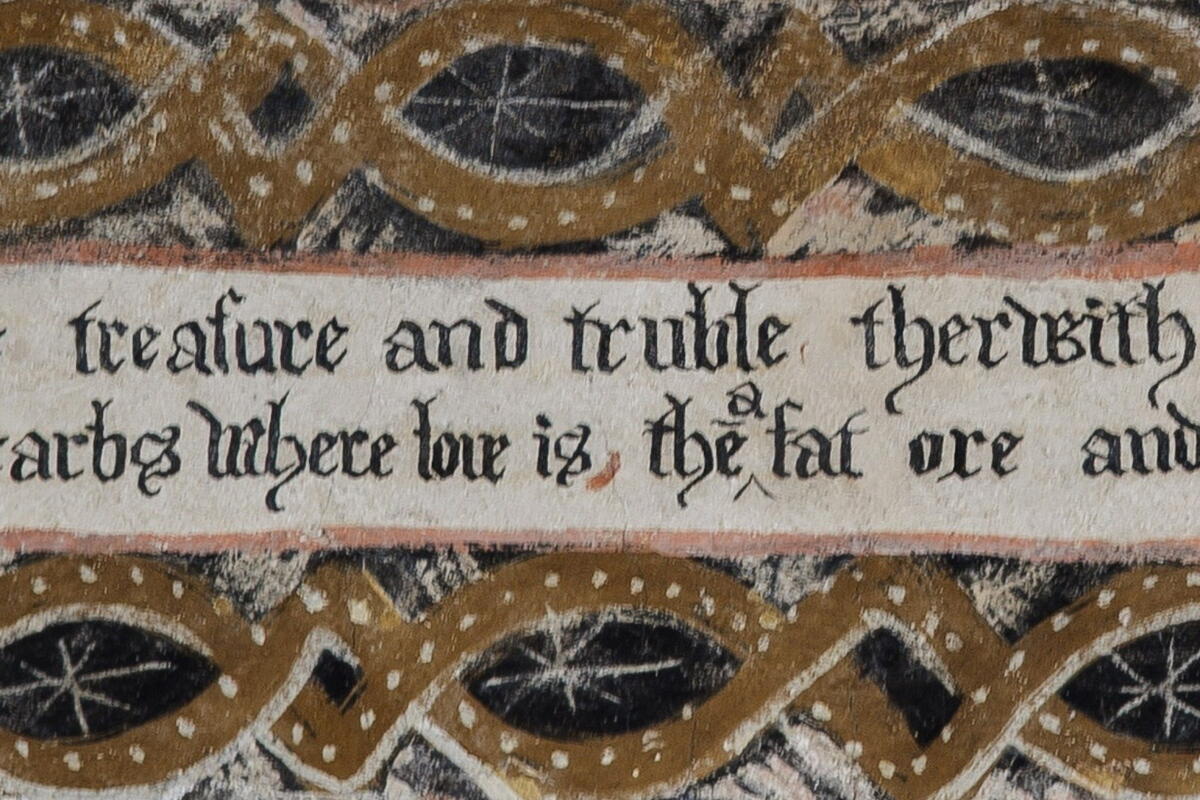 treasure and truble therwith
earbs where love is, thē a fat oxe and